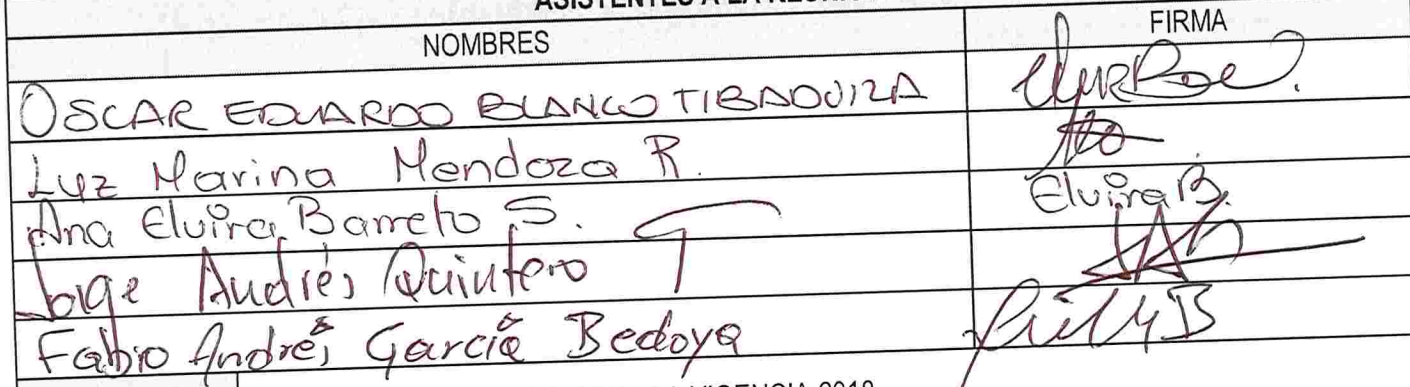 ASISTENTES A LA
NOMBRES FIRMA
OSCAR EDUARDO BLANCO TIBADUIZA
Luz Marina Mendoza R.
Ana Elvira Barreto S. Elvira B.
Jorge Andrés Quintero T
Fabio Andrés García Bedoya
VIGENCIA 2019